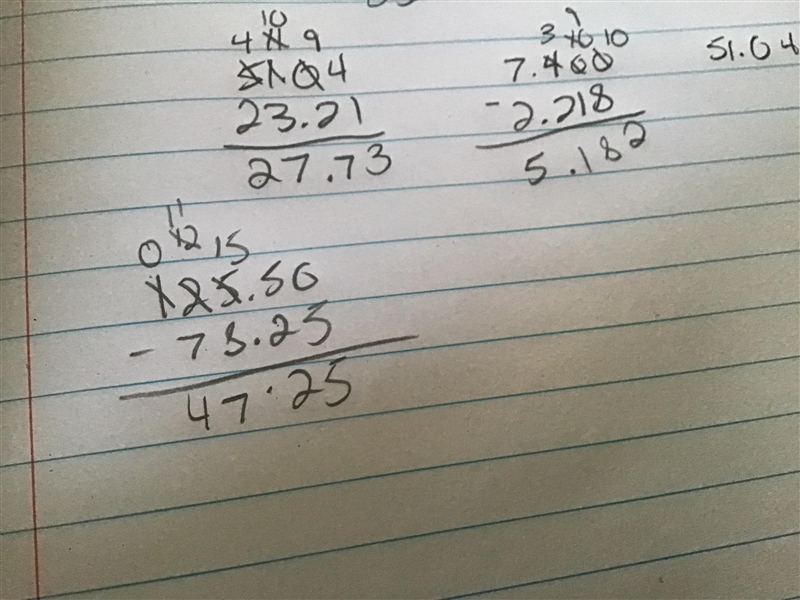 10
4 11 9
5104
23.21
27.73
9
3 10 10
7.400
- 2.218
5.182
51.04
11
0 12 15
125.50
- 78.25
47.25